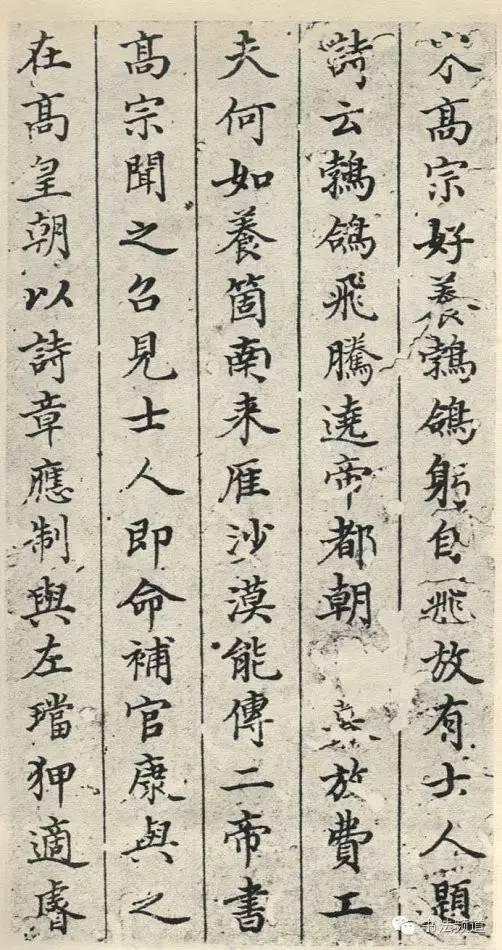 髙宗好養鵓鴿躬自飛放有士人題
詩云鵓鴿飛騰遶帝都朝放費工
夫何如養箇南来雁沙漠能傳二帝書
髙宗聞之召見士人即命補官康與之
在髙皇朝以詩章應制與左璫狎適睿
书法频道